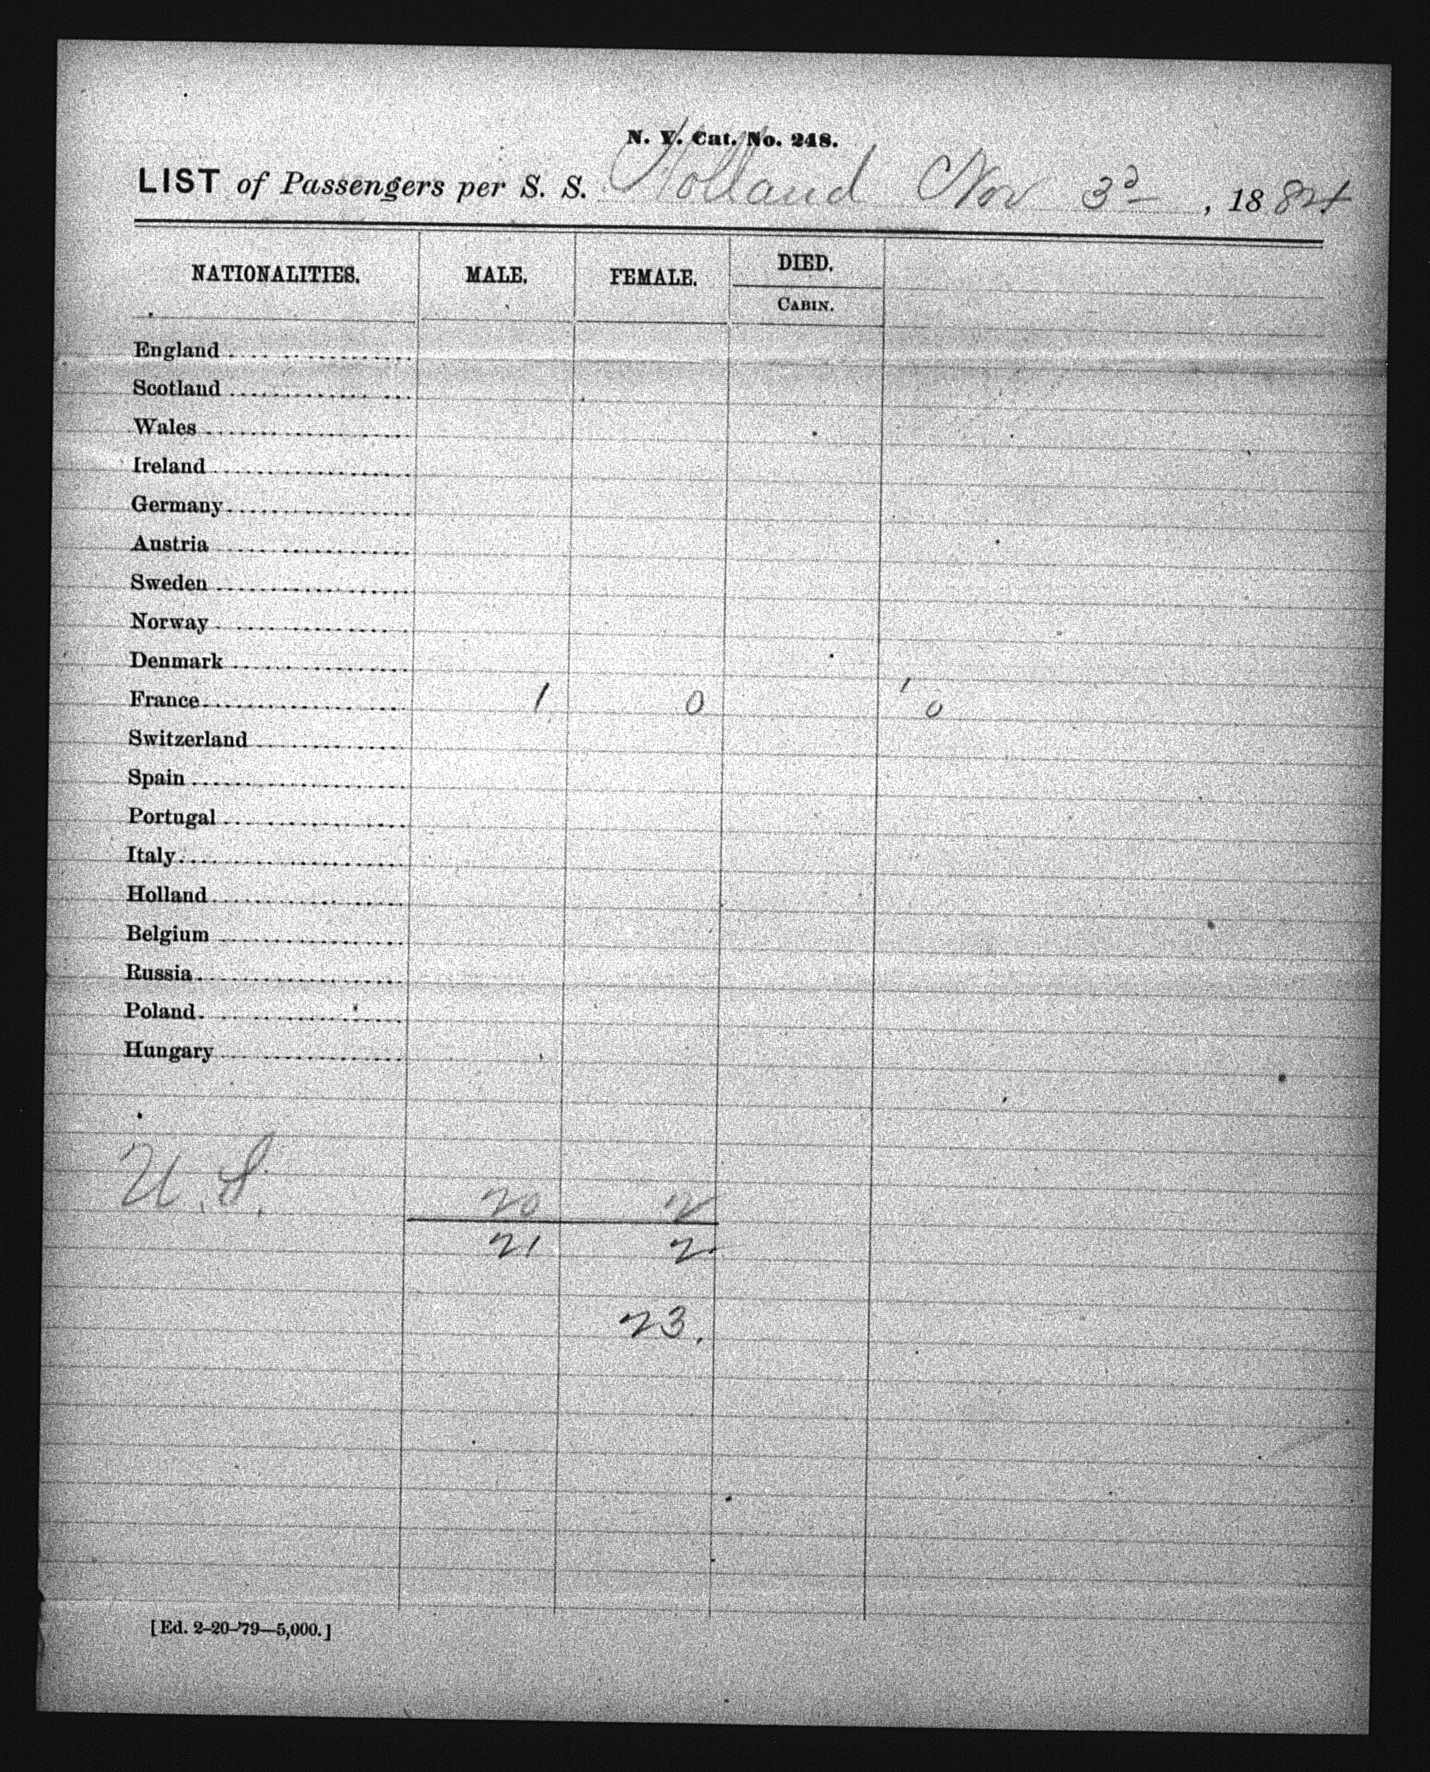 N. Y. Cat. No. 248.
LIST of Passengers per S. S. Holland Nov 3d, 1884
NATIONALITIES. MALE. FEMALE. DIED.
CABIN.
England
Scotland
Wales
Ireland
Germany
Austria
Sweden
Norway
Denmark
France 1 0 1 0
Switzerland
Spain
Portugal
Italy
Holland
Belgium
Russia
Poland
Hungary
U.S. 20 2
21 2
23.
[Ed. 2-20-'79—5,000.]